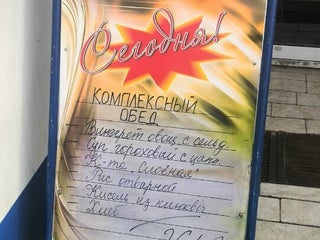 Сегодня!
КОМПЛЕКСНЫЙ
ОБЕД
Винегрет овощ. с сельд.
Суп гороховый с
К-та "Слоёная"
Рис отварной
Кисель из клюквы
Хлеб